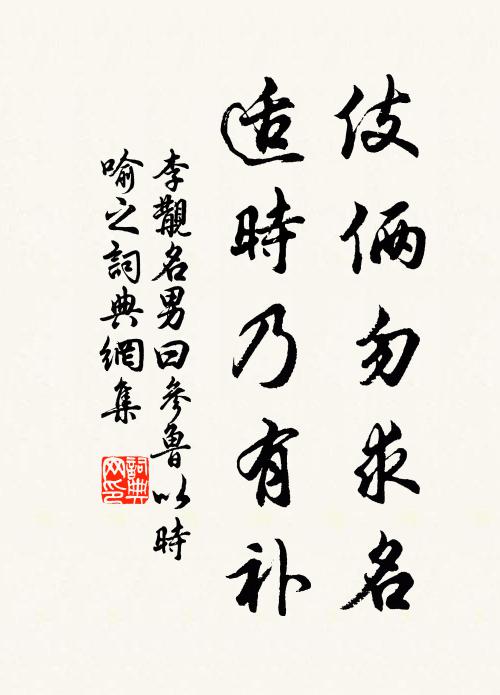 伎俩勿求名
适時乃有补
李觏名男曰參魯以時
喻之詞典網集
詞典网印